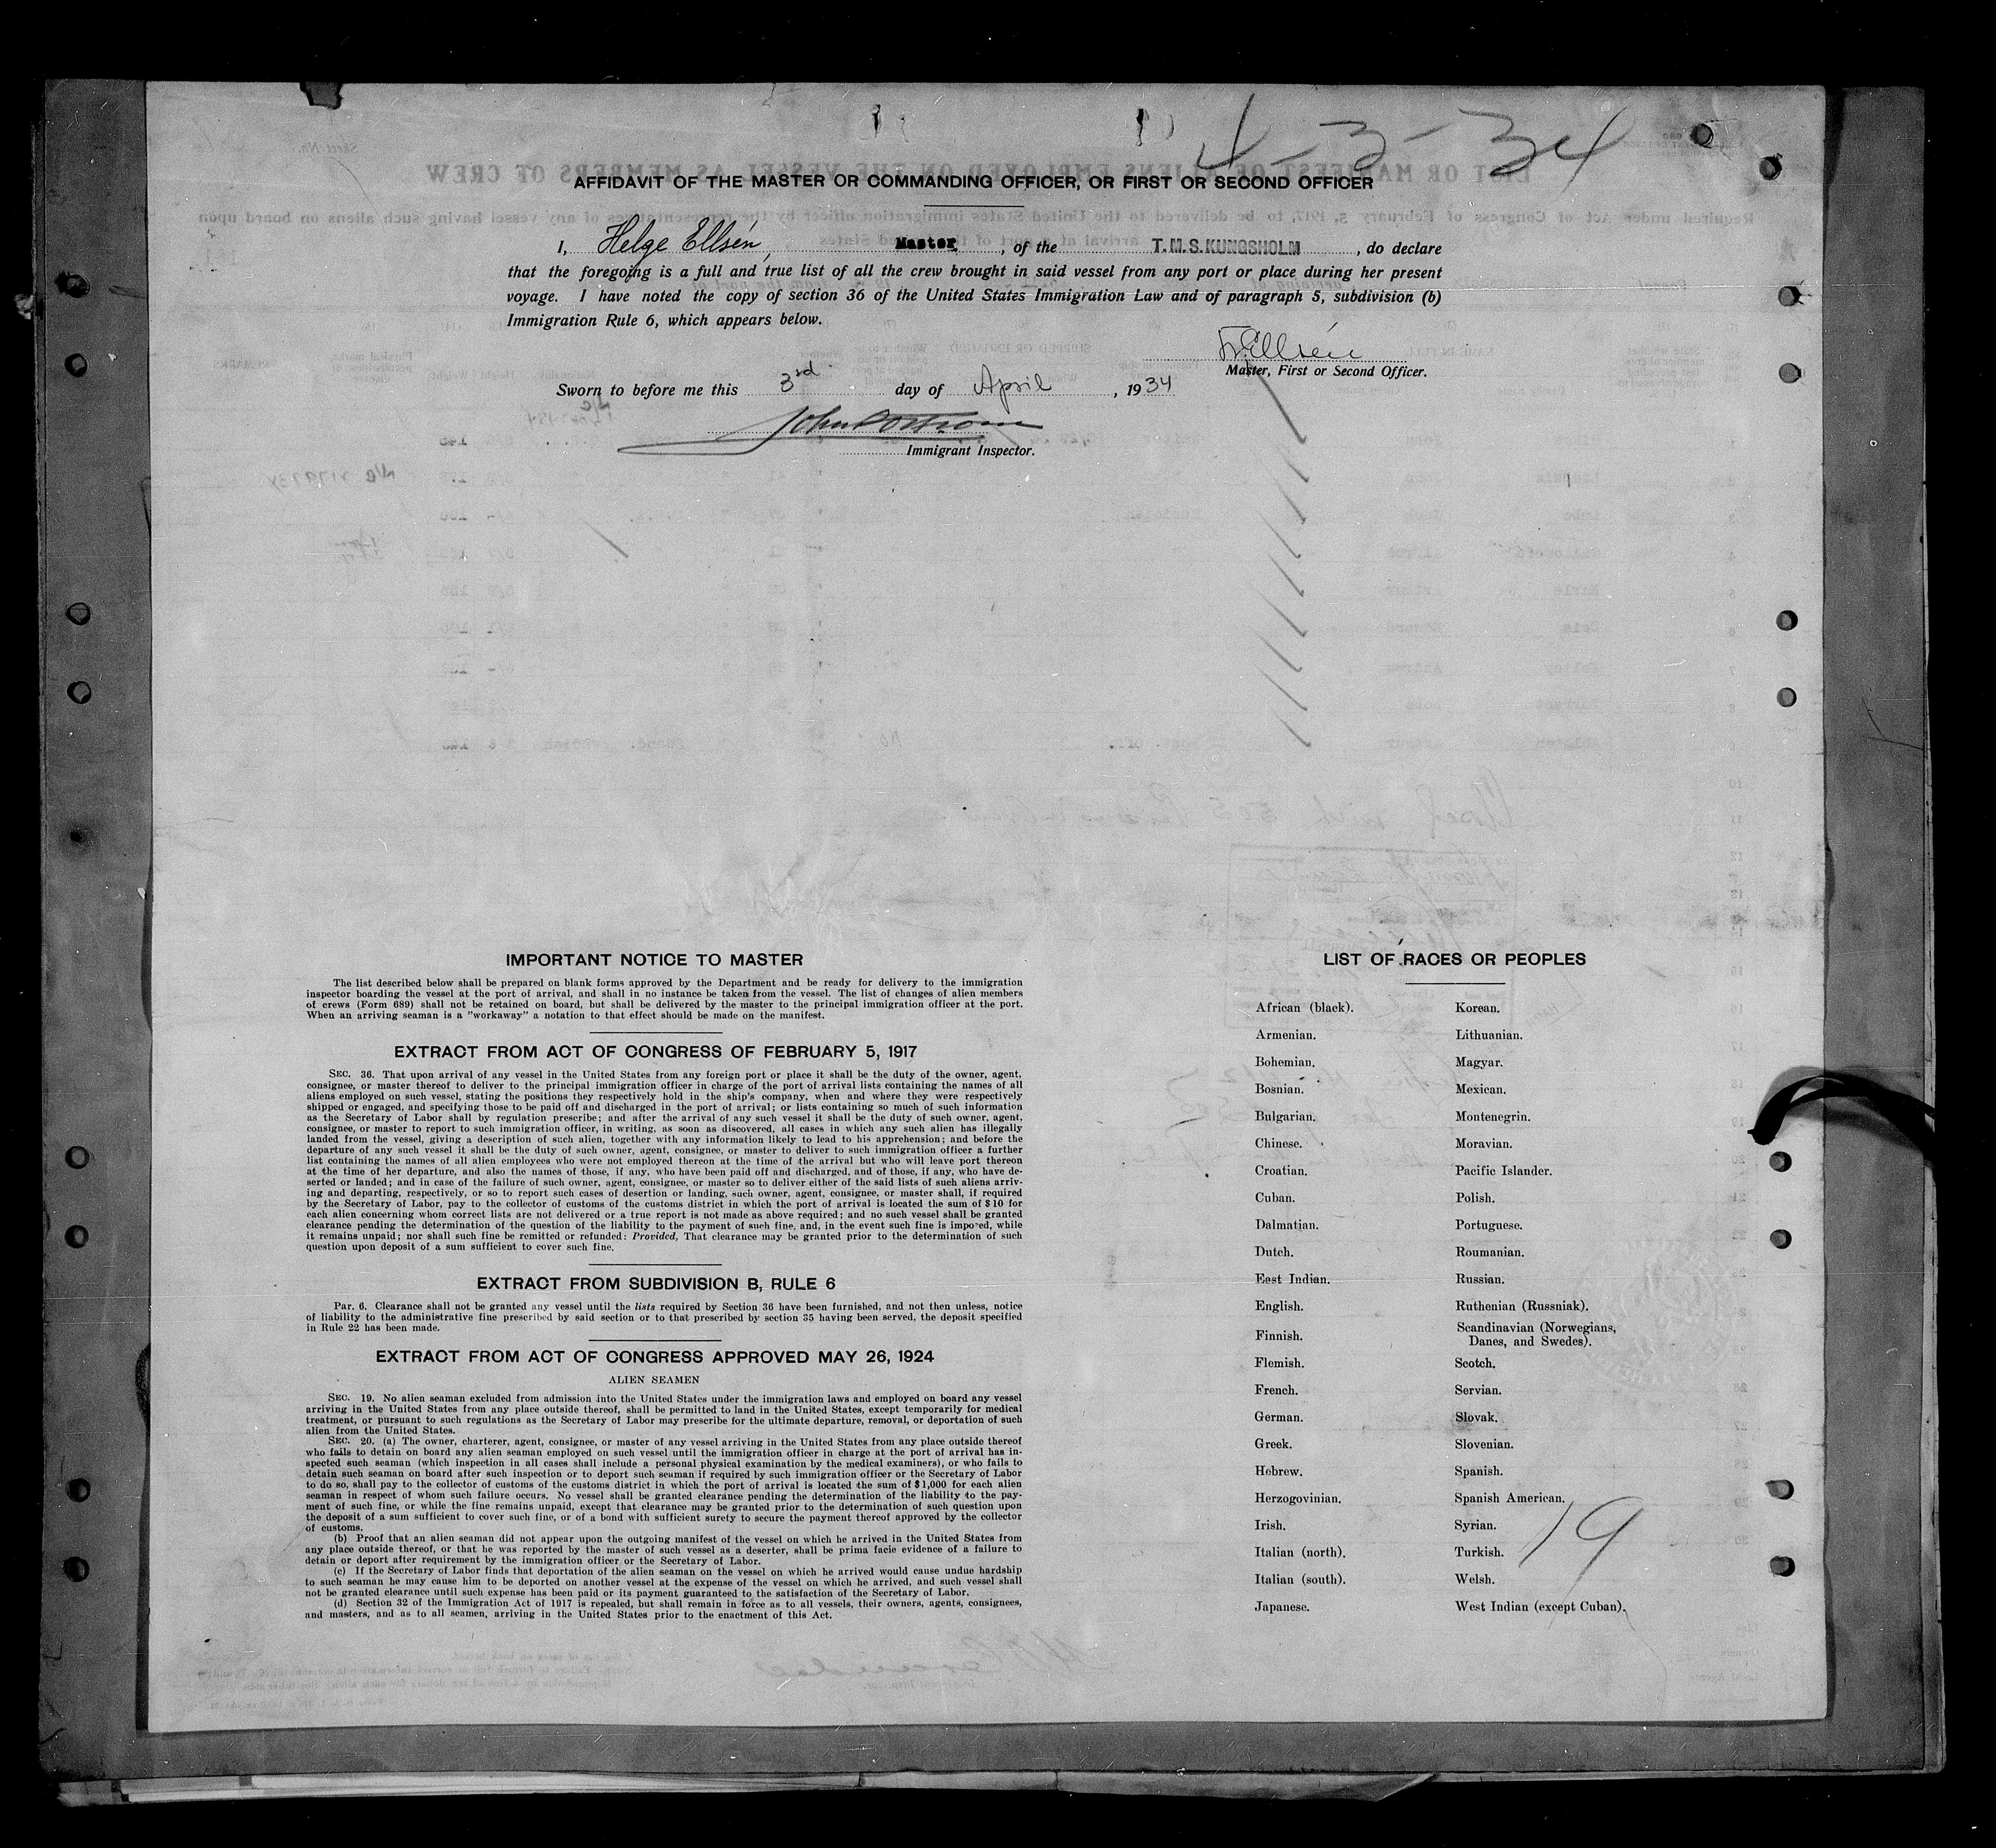 4-3-34
AFFIDAVIT OF THE MASTER OR COMMANDING OFFICER, OR FIRST OR SECOND OFFICER
I, Helge Ellsén, Master, of the T.M.S. KUNGSHOLM, do declare
that the foregoing is a full and true list of all the crew brought in said vessel from any port or place during her present
voyage. I have noted the copy of section 36 of the United States Immigration Law and of paragraph 5, subdivision (b)
Immigration Rule 6, which appears below.
Ellsén
Master, First or Second Officer.
Sworn to before me this 3rd day of April, 1934
Immigrant Inspector.
IMPORTANT NOTICE TO MASTER
The list described below shall be prepared on blank forms approved by the Department and be ready for delivery to the immigration
inspector boarding the vessel at the port of arrival, and shall in no instance be taken from the vessel. The list of changes of alien members
of crews (Form 689) shall not be retained on board, but shall be delivered by the master to the principal immigration officer at the port.
When an arriving seaman is a "workaway" a notation to that effect should be made on the manifest.
EXTRACT FROM ACT OF CONGRESS OF FEBRUARY 5, 1917
SEC. 36. That upon arrival of any vessel in the United States from any foreign port or place it shall be the duty of the owner, agent,
consignee, or master thereof to deliver to the principal immigration officer in charge of the port of arrival lists containing the names of all
aliens employed on such vessel, stating the positions they respectively hold in the ship's company, when and where they were respectively
shipped or engaged, and specifying those to be paid off and discharged in the port of arrival; or lists containing so much of such information
as the Secretary of Labor shall by regulation prescribe; and after the arrival of any such vessel it shall be the duty of such owner, agent,
consignee, or master to report to such immigration officer, in writing, as soon as discovered, all cases in which any such alien has illegally
landed from the vessel, giving a description of such alien, together with any information likely to lead to his apprehension; and before the
departure of any such vessel it shall be the duty of such owner, agent, consignee, or master to deliver to such immigration officer a further
list containing the names of all alien employees who were not employed thereon at the time of the arrival but who will leave port thereon
at the time of her departure, and also the names of those, if any, who have been paid off and discharged, and of those, if any, who have de-
serted or landed; and in case of the failure of such owner, agent, consignee, or master so to deliver either of the said lists of such aliens arriv-
ing and departing, respectively, or so to report such cases of desertion or landing, such owner, agent, consignee, or master shall, if required
by the Secretary of Labor, pay to the collector of customs of the customs district in which the port of arrival is located the sum of $10 for
each alien concerning whom correct lists are not delivered or a true report is not made as above required; and no such vessel shall be granted
clearance pending the determination of the question of the liability to the payment of such fine, and, in the event such fine is imposed, while
it remains unpaid; nor shall such fine be remitted or refunded: Provided, That clearance may be granted prior to the determination of such
question upon deposit of a sum sufficient to cover such fine.
EXTRACT FROM SUBDIVISION B, RULE 6
Par. 6. Clearance shall not be granted any vessel until the lists required by Section 36 have been furnished, and not then unless, notice
of liability to the administrative fine prescribed by said section or to that prescribed by section 35 having been served, the deposit specified
in Rule 22 has been made.
EXTRACT FROM ACT OF CONGRESS APPROVED MAY 26, 1924
ALIEN SEAMEN
SEC. 19. No alien seaman excluded from admission into the United States under the immigration laws and employed on board any vessel
arriving in the United States from any place outside thereof, shall be permitted to land in the United States, except temporarily for medical
treatment, or pursuant to such regulations as the Secretary of Labor may prescribe for the ultimate departure, removal, or deportation of such
alien from the United States.
SEC. 20. (a) The owner, charterer, agent, consignee, or master of any vessel arriving in the United States from any place outside thereof
who fails to detain on board any alien seaman employed on such vessel until the immigration officer in charge at the port of arrival has in-
spected such seaman (which inspection in all cases shall include a personal physical examination by the medical examiners), or who fails to
detain such seaman on board after such inspection or to deport such seaman if required by such immigration officer or the Secretary of Labor
to do so, shall pay to the collector of customs of the customs district in which the port of arrival is located the sum of $1,000 for each alien
seaman in respect of whom such failure occurs. No vessel shall be granted clearance pending the determination of the liability to the pay-
ment of such fine, or while the fine remains unpaid, except that clearance may be granted prior to the determination of such question upon
the deposit of a sum sufficient to cover such fine, or of a bond with sufficient surety to secure the payment thereof approved by the collector
of customs.
(b) Proof that an alien seaman did not appear upon the outgoing manifest of the vessel on which he arrived in the United States from
any place outside thereof, or that he was reported by the master of such vessel as a deserter, shall be prima facie evidence of a failure to
detain or deport after requirement by the immigration officer or the Secretary of Labor.
(c) If the Secretary of Labor finds that deportation of the alien seaman on the vessel on which he arrived would cause undue hardship
to such seaman he may cause him to be deported on another vessel at the expense of the vessel on which he arrived, and such vessel shall
not be granted clearance until such expense has been paid or its payment guaranteed to the satisfaction of the Secretary of Labor.
(d) Section 32 of the Immigration Act of 1917 is repealed, but shall remain in force as to all vessels, their owners, agents, consignees,
and masters, and as to all seamen, arriving in the United States prior to the enactment of this Act.
LIST OF RACES OR PEOPLES
African (black).
Armenian.
Bohemian.
Bosnian.
Bulgarian.
Chinese.
Croatian.
Cuban.
Dalmatian.
Dutch.
East Indian.
English.
Finnish.
Flemish.
French.
German.
Greek.
Hebrew.
Herzogovinian.
Irish.
Italian (north).
Italian (south).
Japanese.
Korean.
Lithuanian.
Magyar.
Mexican.
Montenegrin.
Moravian.
Pacific Islander.
Polish.
Portuguese.
Roumanian.
Russian.
Ruthenian (Russniak).
Scandinavian (Norwegians,
Danes, and Swedes).
Scotch.
Servian.
Slovak.
Slovenian.
Spanish.
Spanish American.
Syrian.
Turkish.
Welsh.
West Indian (except Cuban).
19